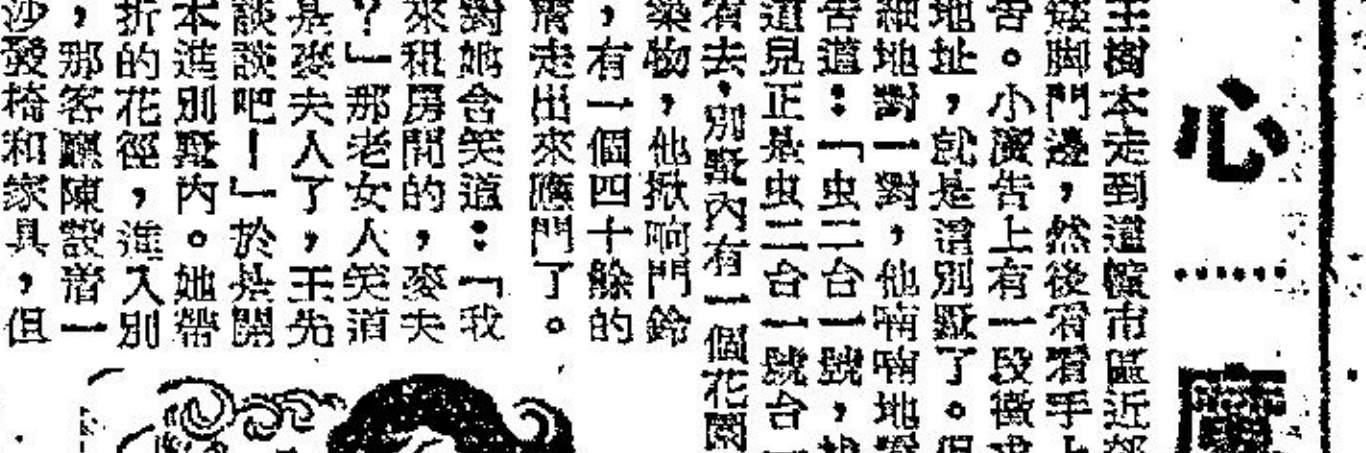 心……
王樹本走到這幢市區近郊
矮脚門邊,然後看看手上
告。小廣告上有一段徵求
地址,就是這別墅了。但
細地對一對,他喃喃地
告道:「虫二台一號,
這見正是虫二台一號台
有去,別墅內有一個花園
築物,他揿响門鈴
,有一個四十餘的
走出來應門了。
對她含笑道:「我
來租房間的,麥夫
?」那老女人笑道
是麥夫人了,王先
談談吧!」於是開
本進別墅內。她帶
折的花徑,進入別
,那客廳陳設着一
沙發椅和家具,但